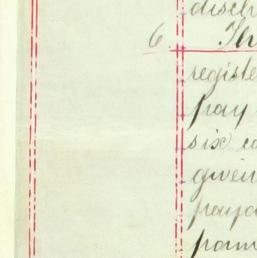 disch
6. The
registe
pay
six co
given
paya
paym